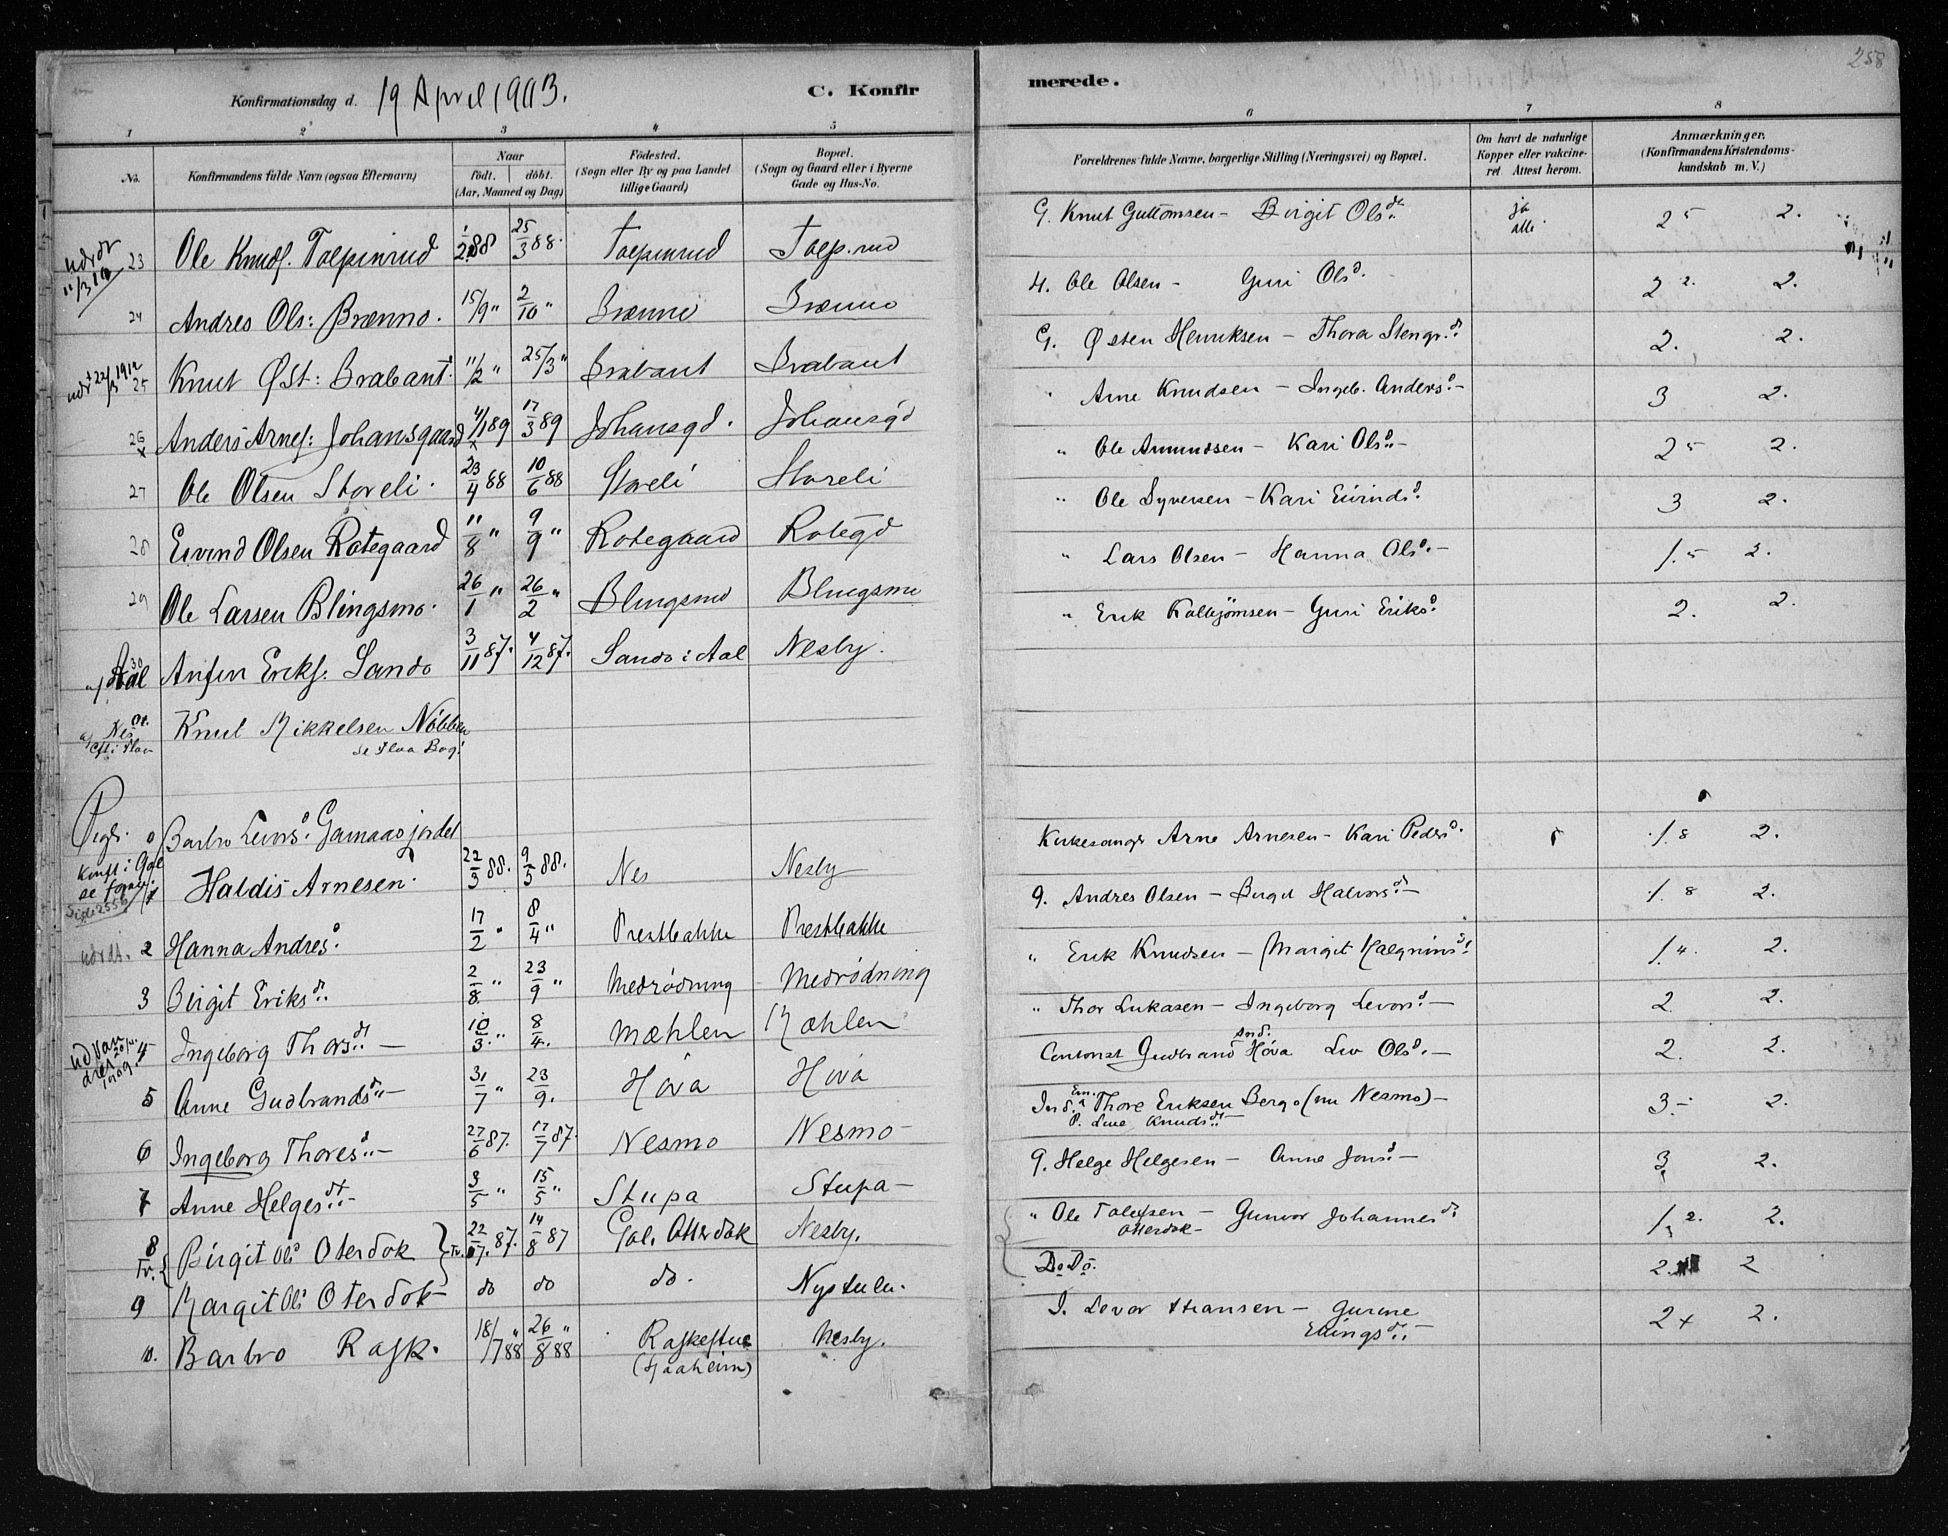 258
Konfirmationsdag d. 19 April 1903. C. Konfirmerede.
1 2 3 4 5 6 7 8
No.
Konfirmandens fulde Navn (ogsaa Efternavn)
Naar
født. døbt.
(Aar, Maaned og Dag)
Fødested.
(Sogn eller By og paa Landet
tillige Gaard)
Bopæl.
(Sogn og Gaard eller i Byerne
Gade og Hus-No.
Forældrenes fulde Navne, borgerlige Stilling (Næringsvei) og Bopæl.
Om havt de naturlige
Kopper eller vakcine-
ret Attest herom.
Anmærkninger.
(Konfirmandens Kristendoms-
kundskab m. V.)
23 Ole Knuds. Tolpinrud 1/2 88 25/3 88. Tolpinrud Tolp.rud G. Knut Guttomsen - Birgit Olsdt. ja alle 2 5 2.
24 Andres Ols: Brænno. 15/9 " 2/10 " Brænno Brænno 4. Ole Olsen - Guri Olsd. 2 2. 2.
25 Knut Øst: Brabant. 11/2 " 25/3 " Brabant Brabant G. Østen Henriksen - Thora Stengr.d. 2. 2.
26 Anders Arnes: Johansgaard 4/1 89 17/3 89 Johansgd. Johansgd " Arne Knudsen - Ingeb. Andersd. - 3 2.
27 Ole Olsen Storeli. 23/4 88 10/6 88 Storeli Storeli " Ole Amundsen - Kari Olsd. - 2 5 2.
28 Eivind Olsen Rotegaard 11/8 " 9/9 " Rotegaard Rotegd " Ole Syversen - Kari Eivindsd. 3 2.
29 Ole Larsen Blingsmo. 26/1 " 26/2 " Blingsmo Blingsmo " Lars Olsen - Hanna Olsd. - 1.5 2.
30 Aal Anfin Eriks. Sando 3/11 87. 4/12 87. Sando i Aal Nesby. " Erik Kolbjømsen - Guri Eriksd. 2. 2.
Nes Knut Mikkelsen Nøbben
se Flaa Bog!
Piger. 0 Barbro Levorsd. Garnaasjordet
Konf. i Gol
se foran.
Side 255b
1 Haldis Arnesen. 22/3 88. 9/5 88. Nes Nesby Kirkesanger Arne Arnesen - Kari Pedersd. 1.8 2.
2 Hanna Andresd. 17/2 " 8/4 " Prestbakke Prestbakke G. Andres Olsen - Birgit Halvorsdt. - 1.8 2.
3 Birgit Eriksdt. 2/8 " 23/9 " Medrødning Medrødning " Erik Knudsen - Margit Halgrimsd. 1.4. 2.
4 Ingeborg Thorsdt. - 10/3 " 8/4. Mæhlen Mæhlen " Thor Lukasen - Ingeborg Levorsd. - 2 2.
5 Anne Gudbrandsdt. - 31/7 " 23/9. Höva Höva Contorist Gudbrand And. Höva Liv Olsd. - 2. 2.
6 Ingeborg Thoresd. - 27/6 87. 17/7 87. Nesmo Nesmo - Ind. Em. Thore Eriksen Bergo (nu Nesmo) - 3. - 2.
P. Live Knudsdt. -
7 Anne Helgesdt. 3/5 " 15/5 " Stupa Stupa - G. Helge Helgesen - Anne Jonsd. - 3 2.
8 Tv. Birgit Olsd Oterdok Tv. 22/7. 87. 14/8 87 Gol. Otterdok Nesby. " Ole Tolefsen - Gunvor Johannesd. 1 2. 2.
Otterdok -
9 Margit Olsd Oterdok - do do do. Nystulu. Do Do. 2. 2
10. Barbro Rask. 18/7 88 26/8 88 Raskestue Nesby. J. Levor Hansen - Gurine 2 + 2.
(Haaheim) Ellingsdt. -